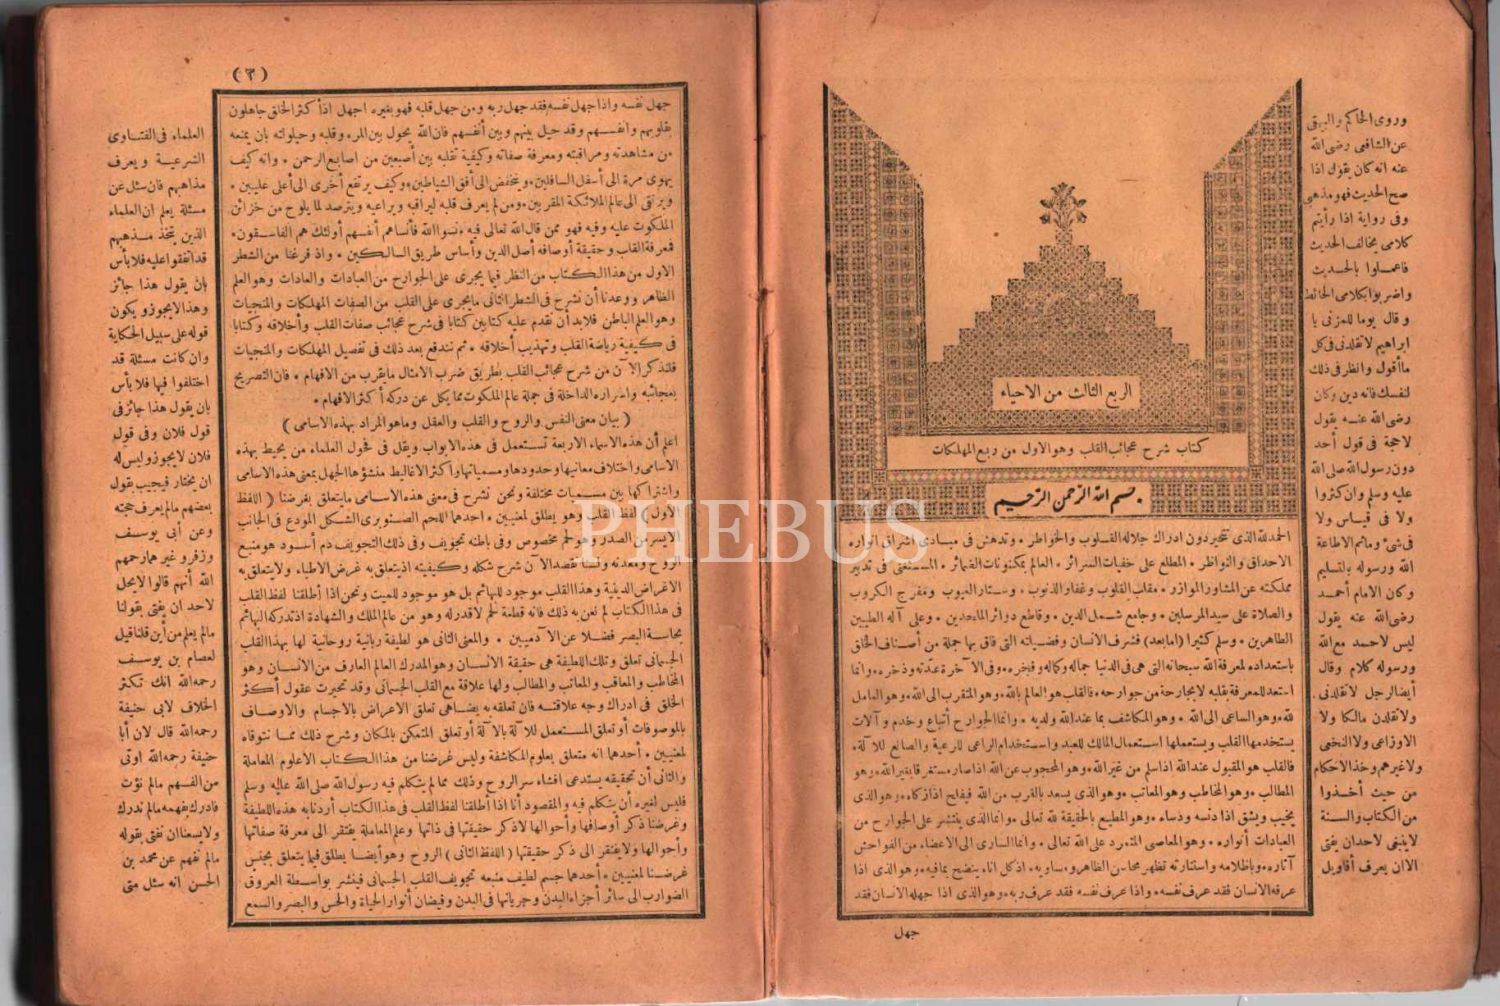 وروى الحاكم والبيهقى
عن الشافعى رضى الله
عنه انه كان يقول اذا
صح الحديث فهو مذهبى
وفى رواية اذا رأيتم
كلامى يخالف الحديث
فاعملوا بالحديث
واضربوا بكلامى الحائط
وقال يوما للمزنى يا
ابراهيم لا تقلدنى فى كل
ما أقول وانظر فى ذلك
لنفسك فانه دين وكان
رضى الله عنه يقول
لا حجة فى قول أحد
دون رسول الله صلى الله
عليه وسلم وان كثروا
ولا فى قياس ولا
فى شئ وما ثم الاطاعة
الله ورسوله بالتسليم
وكان الامام أحمد
رضى الله عنه يقول
ليس لاحد مع الله
ورسوله كلام وقال
أيضا لرجل لا تقلدنى
ولا تقلدن مالكا ولا
الاوزاعى ولا النخعى
ولا غيرهم وخذ الاحكام
من حيث أخذوا
من الكتاب والسنة
لا ينبغى لاحد ان يفتى
الا ان يعرف أقاويل
الربع الثالث من الاحياء
كتاب شرح عجائب القلب وهو الاول من ربع المهلكات
بسم الله الرحمن الرحيم
الحمد لله الذى تتحير دون ادراك جلاله القلوب والخواطر * وتدهش فى مبادى اشراق أنواره
الاحداق والنواظر * المطلع على خفيات السرائر * العالم بمكنونات الضمائر * المستغنى فى تدبير
مملكته عن المشاور والموازر * مقلب القلوب وغفار الذنوب * وستار العيوب * ومفرج الكروب
والصلاة على سيد المرسلين * وجامع شمل الدين * وقاطع دوابر الملحدين * وعلى آله الطيبين
الطاهرين * وسلم كثيرا (امابعد) فشرف الانسان وفضيلته التى فاق بها جملة من أصناف الخلق
باستعداده لمعرفة الله سبحانه التى هى فى الدنيا جماله وكماله وفخره * وفى الآخرة عدته وذخره * وانما
استعد للمعرفة بقلبه لا بجارحة من جوارحه * فالقلب هو العالم بالله * وهو المتقرب الى الله * وهو العامل
لله * وهو الساعى الى الله * وهو المكاشف بما عند الله ولديه * وانما الجوارح أتباع وخدم وآلات
يستخدمها القلب ويستعملها استعمال المالك للعبد واستخدام الراعى للرعية والصانع للآلة *
فالقلب هو المقبول عند الله اذا سلم من غير الله * وهو المحجوب عن الله اذا صار مستغرقا بغير الله * وهو
المطالب * وهو المخاطب وهو المعاتب * وهو الذى يسعد بالقرب من الله فيفلح اذا زكاه * وهو الذى
يخيب ويشقى اذا دنسه ودساه * وهو المطيع بالحقيقة لله تعالى * وانما الذى ينتشر على الجوارح من
العبادات أنواره * وهو العاصى المتمرد على الله تعالى * وانما السارى الى الاعضاء من الفواحش
آثاره * وباظلامه واستنارته تظهر محاسن الظاهر ومساويه * اذ كل اناء ينضح بما فيه * وهو الذى اذا
عرفه الانسان فقد عرف نفسه * واذا عرف نفسه فقد عرف ربه * وهو الذى اذا جهله الانسان فقد
جهل
(٣)
جهل نفسه واذا جهل نفسه فقد جهل ربه ومن جهل قلبه فهو بغيره اجهل اذ أكثر الخلق جاهلون
بقلوبهم وأنفسهم وقد حيل بينهم وبين أنفسهم فان الله يحول بين المرء وقلبه وحيلولته بان يمنعه
من مشاهدته ومراقبته ومعرفة صفاته وكيفية تقلبه بين أصبعين من أصابع الرحمن * وانه كيف
يهوى مرة الى أسفل السافلين * وينخفض الى أفق الشياطين * وكيف يرتفع أخرى الى أعلى عليين *
ويرتقى الى عالم الملائكة المقربين * ومن لم يعرف قلبه ليراقبه ويراعيه ويترصد لما يلوح من خزائن
الملكوت عليه وفيه فهو ممن قال الله تعالى فيه * نسوا الله فأنساهم أنفسهم أولئك هم الفاسقون *
فمعرفة القلب وحقيقة أوصافه أصل الدين وأساس طريق السالكين * واذ فرغنا من الشطر
الاول من هذا الكتاب من النظر فيما يجرى على الجوارح من العبادات والعادات وهو العلم
الظاهر ووعدنا أن نشرح فى الشطر الثانى ما يجرى على القلب من الصفات المهلكات والمنجيات
وهو العلم الباطن فلا بد أن نقدم عليه كتابين كتابا فى شرح عجائب صفات القلب وأخلاقه وكتابا
فى كيفية رياضة القلب وتهذيب أخلاقه * ثم نندفع بعد ذلك فى تفصيل المهلكات والمنجيات
فلنذكر الآن من شرح عجائب القلب بطريق ضرب الامثال ما يقرب من الافهام * فان التصريح
بعجائبه وأسراره الداخلة فى جملة عالم الملكوت مما يكل عن دركه أكثر الافهام *
(بيان معنى النفس والروح والقلب والعقل وما هو المراد بهذه الاسامى)
اعلم أن هذه الاسماء الاربعة تستعمل فى هذه الابواب ويقل فى فحول العلماء من يحيط بهذه
الاسامى واختلاف معانيها وحدودها ومسمياتها وأكثر الاغاليط منشؤها الجهل بمعنى هذه الاسامى
واشتراكها بين مسميات مختلفة ونحن نشرح فى معنى هذه الاسامى ما يتعلق بغرضنا (اللفظ
الاول) لفظ القلب وهو يطلق لمعنيين * احدهما اللحم الصنوبرى الشكل المودع فى الجانب
الايسر من الصدر وهو لحم مخصوص وفى باطنه تجويف وفى ذلك التجويف دم أسود هو منبع
الروح ومعدنه ولسنا نقصد الآن شرح شكله وكيفيته اذ يتعلق به غرض الاطباء ولا يتعلق به
الاغراض الدينية وهذا القلب موجود للبهائم بل هو موجود للميت ونحن اذا أطلقنا لفظ القلب
فى هذا الكتاب لم نعن به ذلك فانه قطعة لحم لا قدر له وهو من عالم الملك والشهادة اذ تدركه البهائم
بحاسة البصر فضلا عن الآدميين * والمعنى الثانى هو لطيفة ربانية روحانية لها بهذا القلب
الجسمانى تعلق وتلك اللطيفة هى حقيقة الانسان وهو المدرك العالم العارف من الانسان وهو
المخاطب والمعاقب والمعاتب والمطالب ولها علاقة مع القلب الجسمانى وقد تحيرت عقول أكثر
الخلق فى ادراك وجه علاقته فان تعلقه به يضاهى تعلق الاعراض بالاجسام والاوصاف
بالموصوفات أو تعلق المستعمل للآلة بالآلة أو تعلق المتمكن بالمكان وشرح ذلك مما نتوقاه
لمعنيين * أحدهما انه متعلق بعلوم المكاشفة وليس غرضنا من هذا الكتاب الا علوم المعاملة
والثانى أن تحقيقه يستدعى افشاء سر الروح وذلك مما لم يتكلم فيه رسول الله صلى الله عليه وسلم
فليس لغيره أن يتكلم فيه والمقصود أنا اذا أطلقنا لفظ القلب فى هذا الكتاب أردنا به هذه اللطيفة
وغرضنا ذكر أوصافها وأحوالها لا ذكر حقيقتها فى ذاتها وعلم المعاملة يفتقر الى معرفة صفاتها
وأحوالها ولا يفتقر الى ذكر حقيقتها (اللفظ الثانى) الروح وهو أيضا يطلق فيما يتعلق بجنس
غرضنا لمعنيين * أحدهما جسم لطيف منبعه تجويف القلب الجسمانى فينشر بواسطة العروق
الضوارب الى سائر أجزاء البدن وجريانها فى البدن وفيضان أنوار الحياة والحس والبصر والسمع
العلماء فى الفتاوى
الشرعية ويعرف
مذاهبهم فان سئل عن
مسئلة يعلم ان العلماء
الذين يتخذ مذهبهم
قد اتفقوا عليه فلا بأس
بان يقول هذا جائز
وهذا لا يجوز ويكون
قوله على سبيل الحكاية
وان كانت مسئلة قد
اختلفوا فيها فلا بأس
بان يقول هذا جائز فى
قول فلان وفى قول
فلان لا يجوز وليس له
ان يختار فيجيب بقول
بعضهم ما لم يعرف حجته
وعن أبى يوسف
وزفر وغيرهما رحمهم
الله أنهم قالوا لا يحل
لاحد ان يفتى بقولنا
ما لم يعلم من أين قلنا قيل
لعصام بن يوسف
رحمه الله انك تكثر
الخلاف لابى حنيفة
رحمه الله قال لان أبا
حنيفة رحمه الله اوتى
من الفهم ما لم نؤت
فادرك بفهمه ما لم ندرك
ولا يسعنا ان نفتى بقوله
ما لم نفهم عن محمد بن
الحسن انه سئل متى
PHEBUS